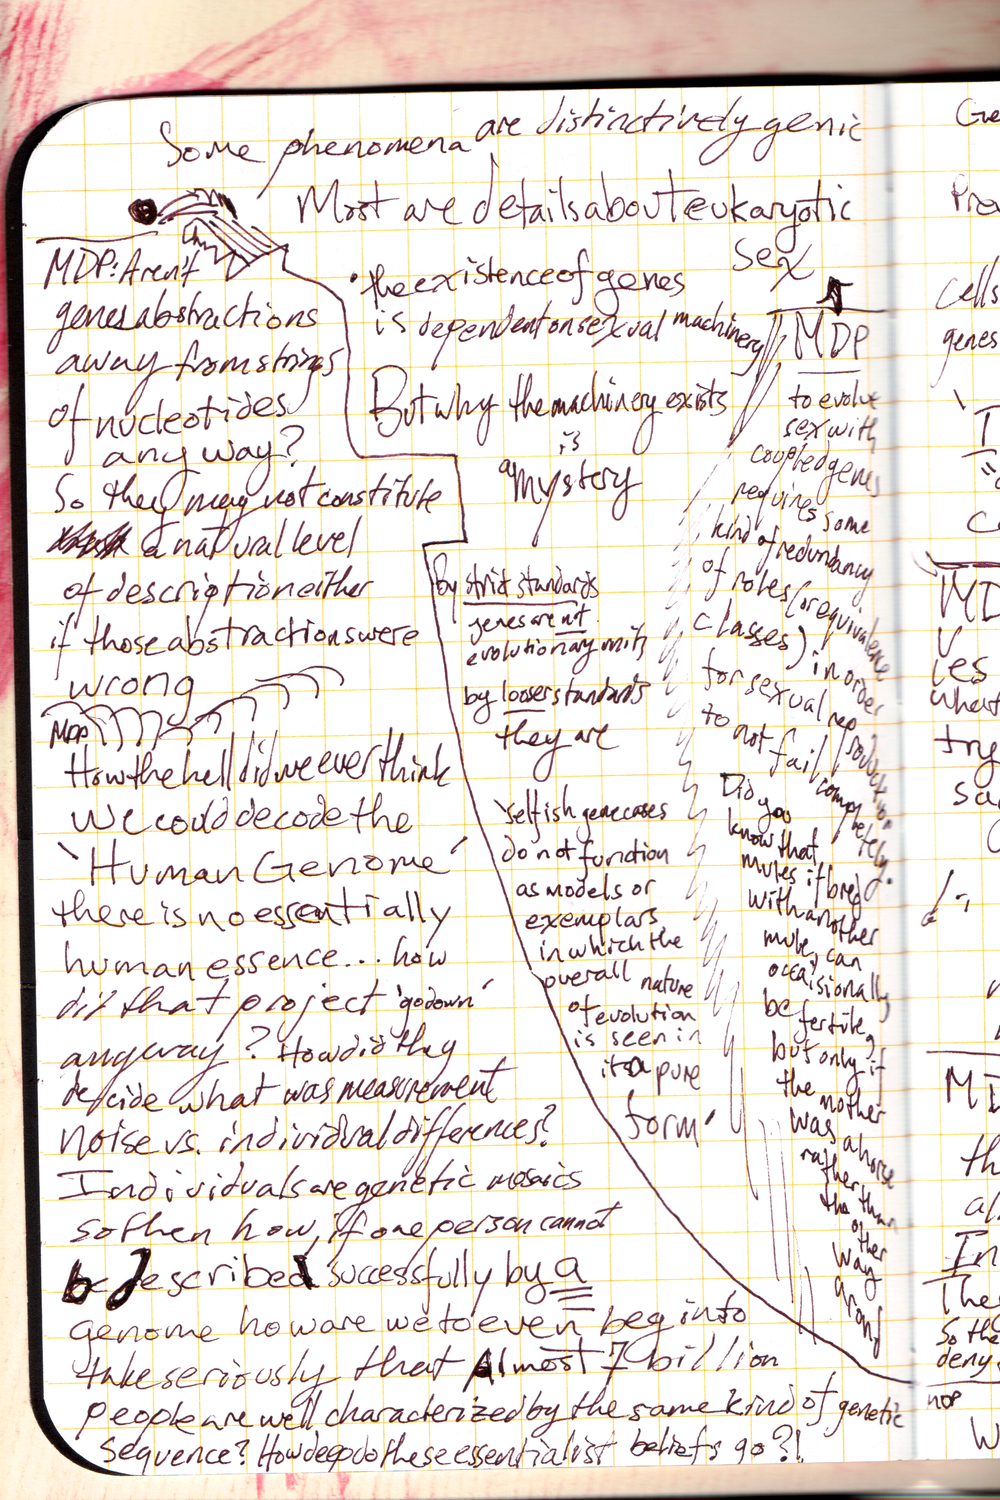 Some phenomena are distinctively genic
Most are details about eukaryotic
sex
MDP: Aren't
genes abstractions
away from strings
of nucleotides
any way?
So they may not constitute
a natural level
of description either
if those abstractions were
wrong
• the existence of genes
is dependent on sexual machinery
But why the machinery exists
is
a mystery
by strict standards
genes are not
evolutionary units
by looser standards
they are
'Selfish gene cases
do not function
as models or
exemplars
in which the
overall nature
of evolution
is seen in
its pure
form'
MDP
to evolve
sex with
coupled genes
requires some
kind of redundancy
of roles (or equivalence
classes) in order
for sexual reproduction
to not fail completely.
Did you
know that
mules if bred
with another
mule, can
occaisionally
be fertile,
but only if
the mother
was a horse
rather than
the other
way
arond
MDP
How the hell did we ever think
we could decode the
'Human Genome'
there is no essentially
human essence... how
did that project 'go down'
anyway? How did they
decide what was measurement
noise vs. individual differences?
Individuals are genetic mosaics
so then how, if one person cannot
be described successfully by a
genome how are we to even begin to
take seriously that Almost 7 billion
people are well characterized by the same kind of genetic
sequence? How deep do these essentialist beliefs go?!
Cells
genes
MD
what
try
MD
In
So the
deny
MDP